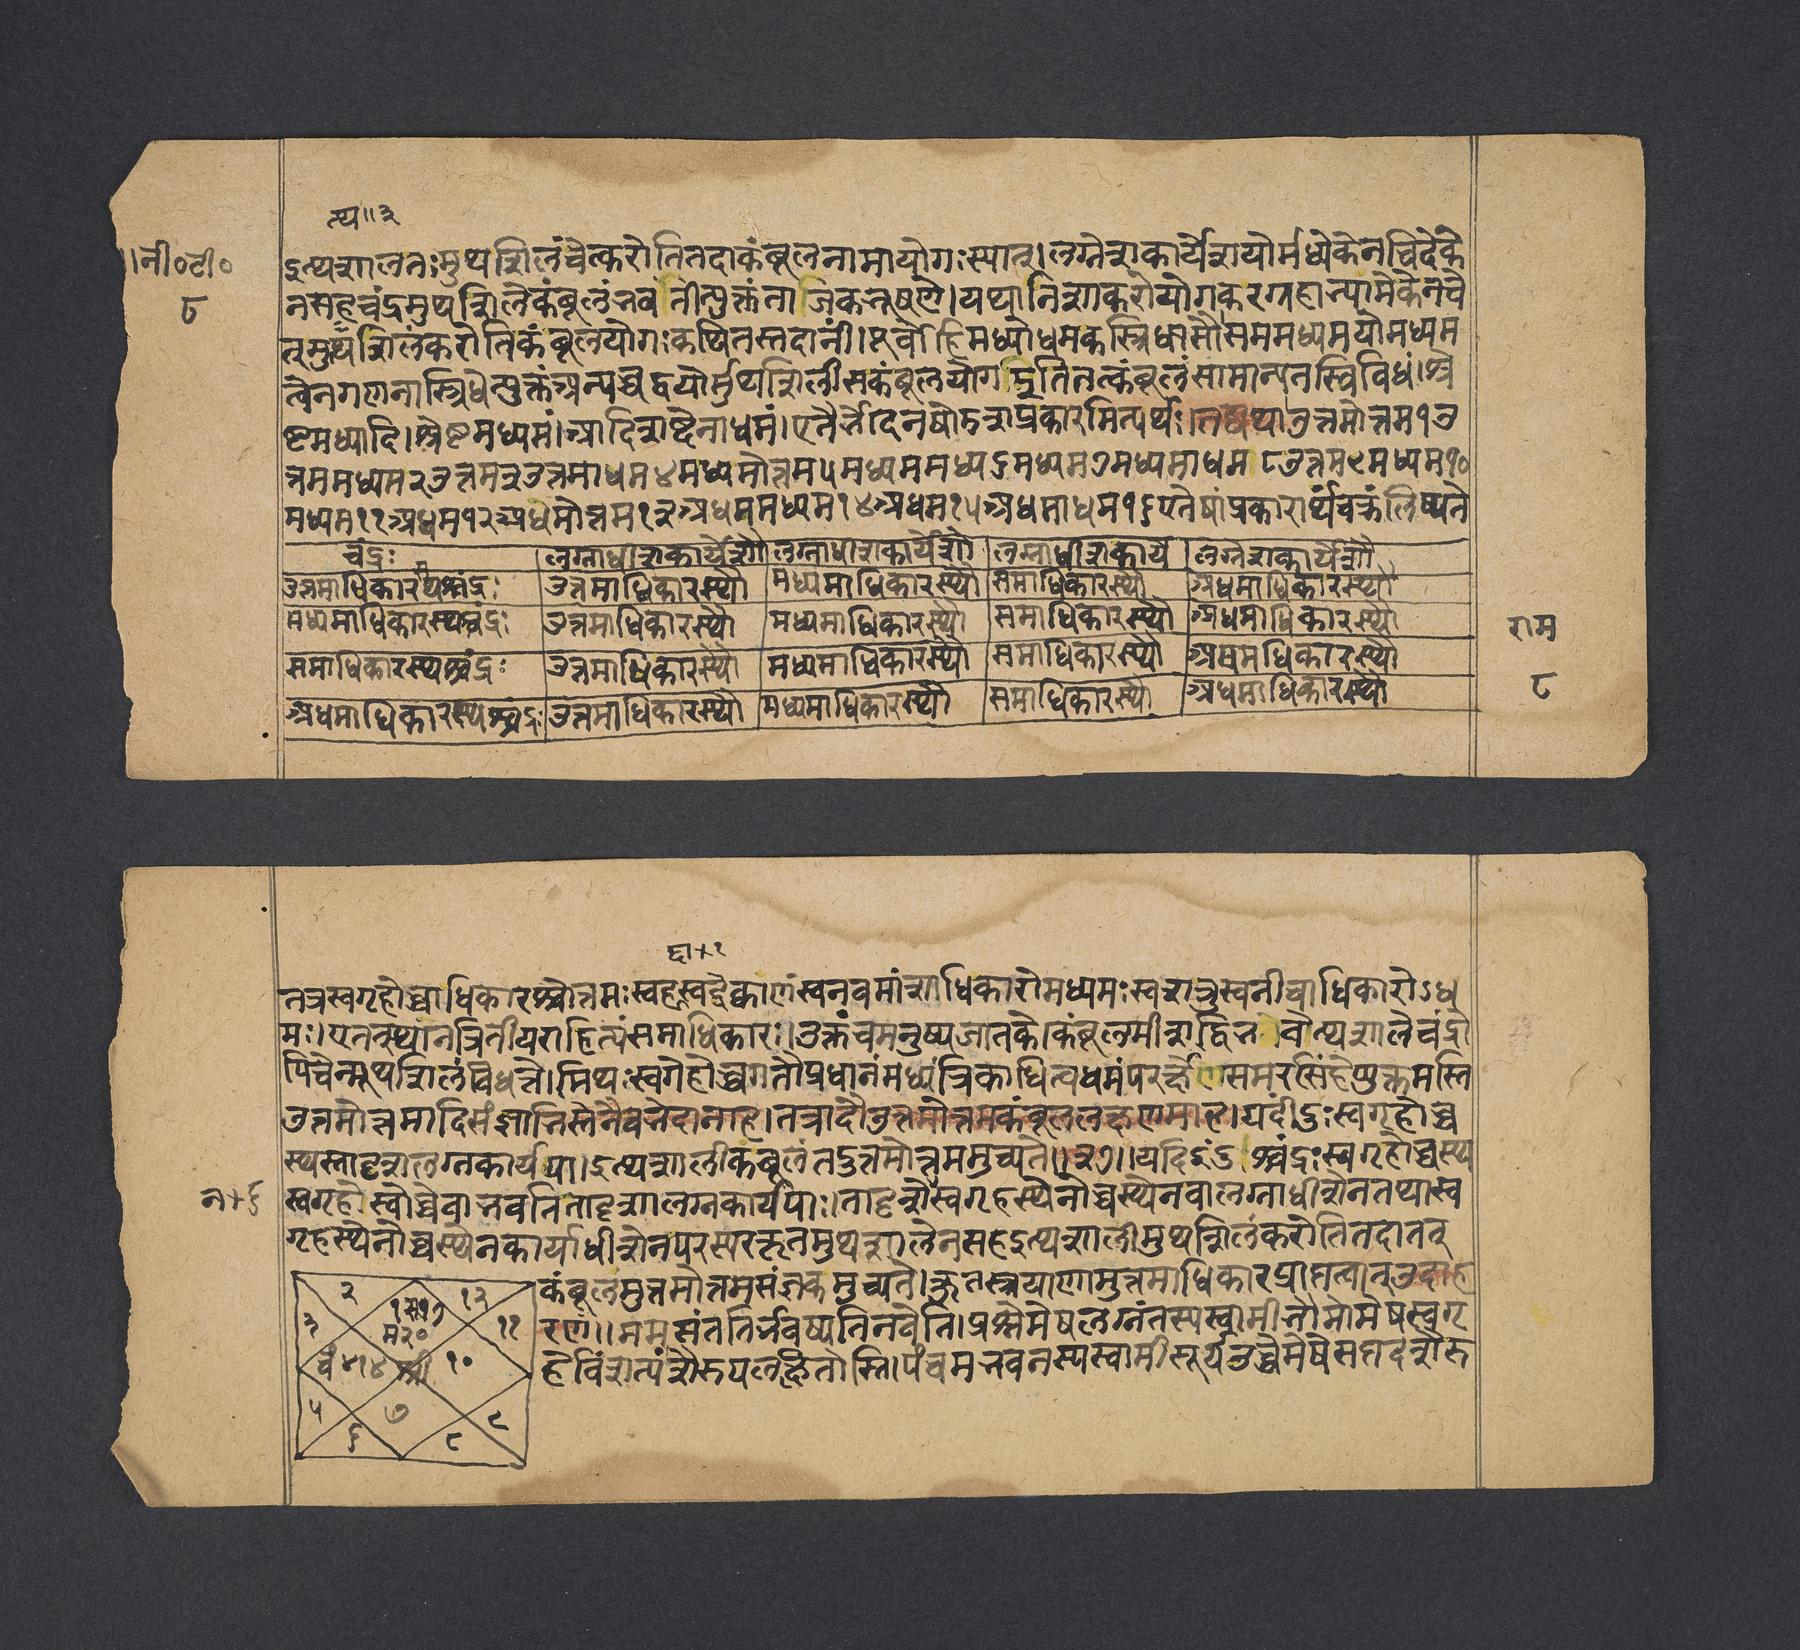 त्थ॥३
॥नी०टी०
८
इत्थशालतः मुथशिलं चेत्करोति तदा कंबूलनामा योगः स्यात्। लग्नेशकार्येशयोर्मध्ये केनचिदेके
न सह चंद्रमुथशिले कंबूलं भवतीत्युक्तं ताजिकभूषणे। यथा
त्मुथशिलं करोति कंबूलयोगः कथितस्तदानीं।
त्वेन गणनास्त्रिधेत्युक्तं अन्यच्च द्वयोर्मुथशिली सकंबूलयोग इति तत्कंबूलं सामान्यतस्त्रिविधं। श्रे
ष्टमध्यादि। श्रेष्टमध्यमं। एतैर्भेदेन षोडशप्रकारमित्यर्थः। तद्यथा उत्तमोत्तम १ उ
त्तममध्यम २ उत्तम ३ उत्तमाधम ४ मध्यमोत्तम ५ मध्यममध्य ६ मध्यम ७ मध्यमाधम ८ उत्तम ९ मध्यम १०
मध्यम ११ अधम १२ अधमोत्तम १३ अधममध्यम १४ अधम १५ अधमाधम १६ एतेषां प्रकारार्थं चक्रं लिष्यते
चंद्रः लग्नाधीशकार्येशौ लग्नाधीशकार्येशौ लग्नाधीशकार्ये लग्नेशकार्येशौ
उत्तमाधिकारस्थश्चंद्रः उत्तमाधिकारस्थौ मध्यमाधिकारस्थौ समाधिकारस्थौ अधमाधिकारस्थौ
मध्यमाधिकारस्थश्चंद्रः उत्तमाधिकारस्थौ मध्यमाधिकारस्थौ समाधिकारस्थौ अधमाधिकारस्थौ
समाधिकारस्थश्चंद्रः उत्तमाधिकारस्थौ मध्यमाधिकारस्थौ समाधिकारस्थौ अधमधिकारस्थौ
अधमाधिकारस्थश्चंद्रः उत्तमाधिकारस्थौ मध्यमाधिकारस्थौ समाधिकारस्थौ अधमाधिकारस्थौ
राम
८
द्दा+१
तत्र स्वगृहोच्चाधिकारश्चोत्तमः स्वहद्दास्वद्रेक्काणं स्वनवमांशाधिकारो मध्यमः स्वशत्रुस्वनीचाधिकारोऽध
मः। एतत्स्थानत्रितीयराहित्यं समाधिकारः। उक्तं च मनुष्यजातके। कंबूलमीशद्वित
पि चेन्मूथशिलं विधत्ते। मिथः स्वगेहोच्चगतौ प्रधानं मध्यं त्रिकाधित्वधमं समरसिंहेप्युक्तमस्ति
उत्तमोत्तमादिसंज्ञा तत्रादौ उत्तमोत्तमकंबूललक्षणमाह। यदींदुः स्वगृहोच्च
स्थस्तादृशलग्नकार्यपा। इत्थशाली कंबूलं तदुत्तमोत्तममुच्यते॥३७॥ यदि इंदुश्चंद्रः स्वगृहोच्चस्थ
त+६
स्वगृहे स्वोच्चे वा भवति तादृशालग्नकार्यपाः। तादृशे स्वगृहस्थेनोच्चस्थेन वा लग्नाधीशेन तथा स्व
गृहस्थेनोच्चस्थेन कार्याधीशेन परस्परकृतमुथशिलेन सह इत्थशाली मुथशिलं करोति तदा तत्
कंबूलमुत्तमोत्तमसंज्ञकमुच्यते। कुतस्त्रयाणामुत्तमाधिकारप्राप्तत्वात् उदाह
रणं॥ मम संततिर्भविष्यति न वेति। प्रश्ने मेषलग्नं तस्य स्वामी भौमो मेषस्वगृ
हे विंशत्यंशेरुपलक्षितोस्ति। पंचमभवनस्य स्वामी सूर्य उच्चे मेषे सप्तदशे रु
२
१२
३
१ सू१७
मं२०
११
चं ४।४
१०
५
७
९
६
८